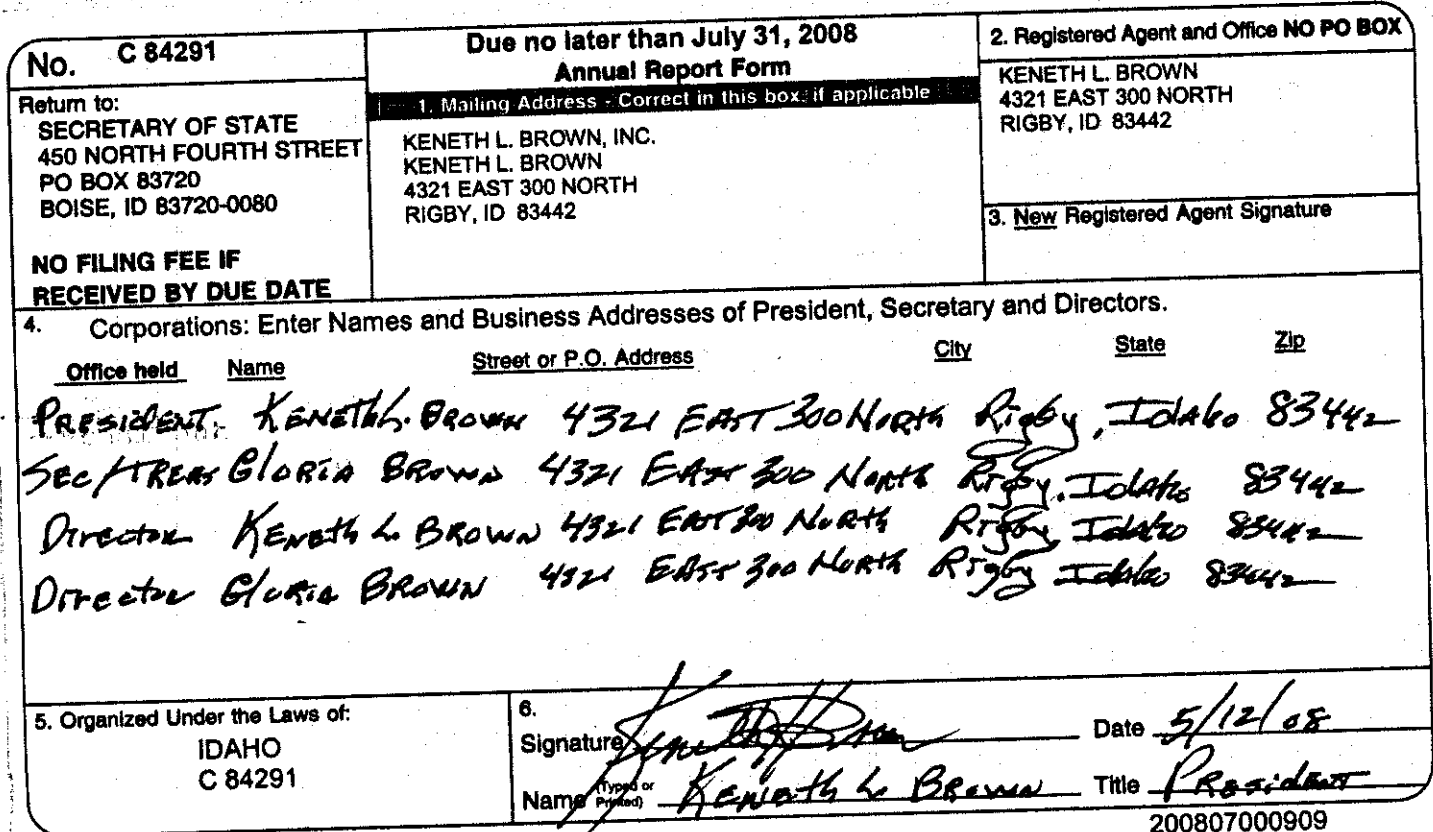 No. C 84291
Return to:
SECRETARY OF STATE
450 NORTH FOURTH STREET
PO BOX 83720
BOISE, ID 83720-0080
NO FILING FEE IF
RECEIVED BY DUE DATE
Due no later than July 31, 2008
Annual Report Form
1. Mailing Address - Correct in this box, if applicable
KENETH L. BROWN, INC.
KENETH L. BROWN
4321 EAST 300 NORTH
RIGBY, ID 83442
2. Registered Agent and Office NO PO BOX
KENETH L. BROWN
4321 EAST 300 NORTH
RIGBY, ID 83442
3. New Registered Agent Signature
4. Corporations: Enter Names and Business Addresses of President, Secretary and Directors.
Office held Name Street or P.O. Address City State Zip
PRESIDENT. KENETH L. BROWN 4321 EAST 300 NORTH Rigby, IDAHO 83442
SEC/TREAS GLORIA BROWN 4321 EAST 300 NORTH Rigby, Idaho 83442
Director KENETH L. BROWN 4321 EAST 300 NORTH Rigby Idaho 83442
Director GLORIA BROWN 4321 EAST 300 NORTH Rigby Idaho 83442
5. Organized Under the Laws of:
IDAHO
C 84291
6.
Signature Keneth L Brown Date 5/12/08
Name (Typed or Printed) KENETH L BROWN Title PRESIDENT
200807000909